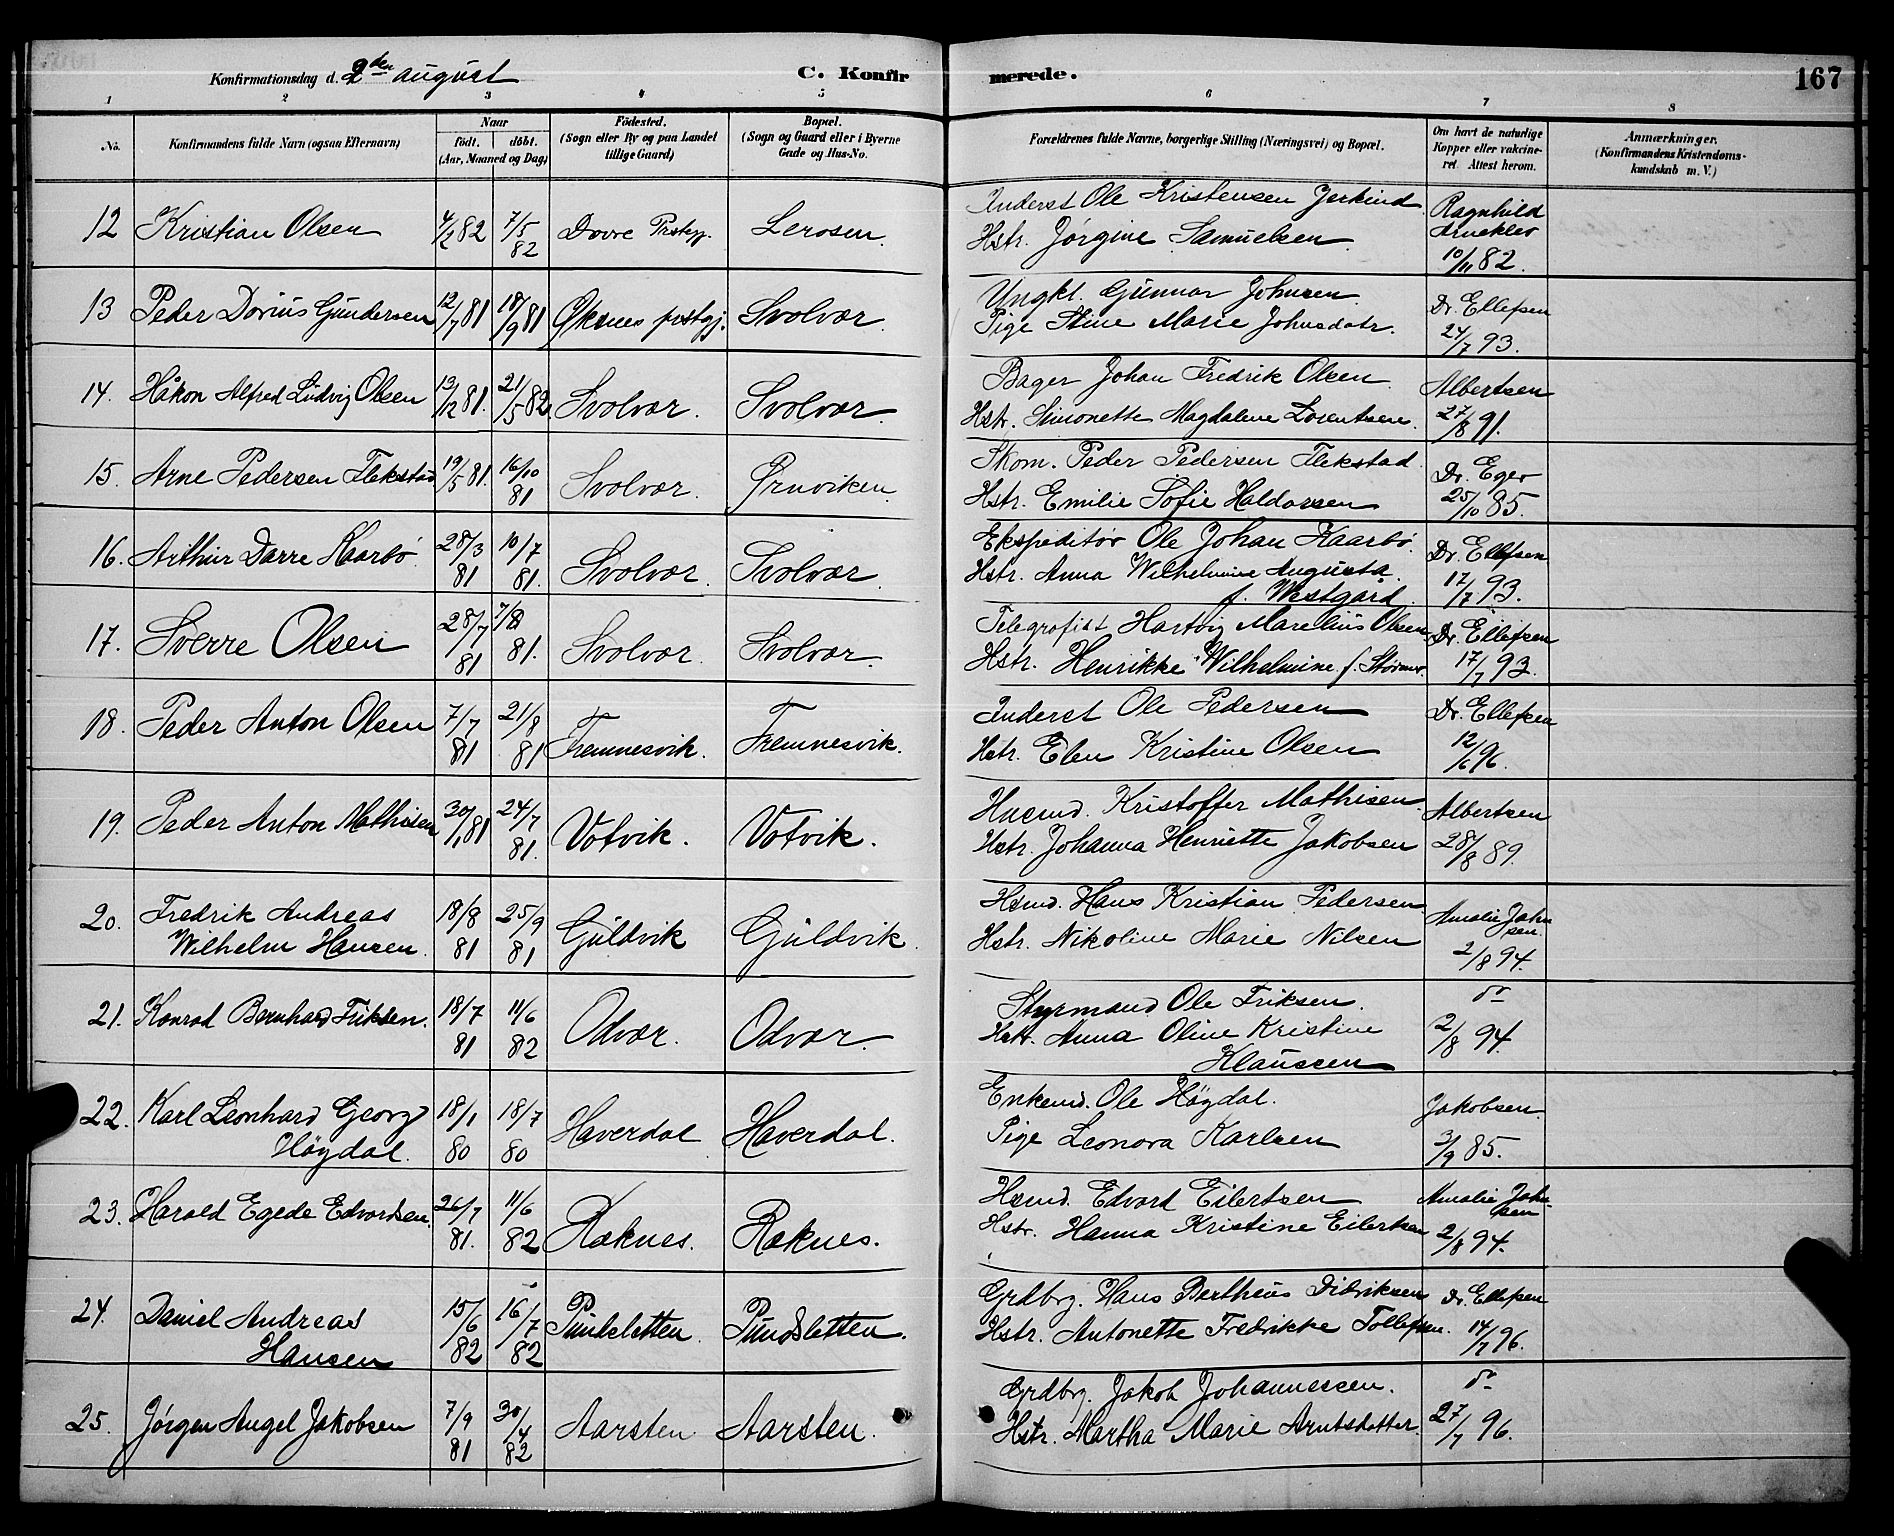 Konfirmationsdag d. 2den august
C. Konfirmerede.
167
1 2 3 4 5 6 7 8
No.
Konfirmandens fulde Navn (ogsaa Efternavn)
Naar
födt. döbt.
(Aar, Maaned og Dag)
Födested.
(Sogn eller By og paa Landet
tillige Gaard)
Bopæl.
(Sogn og Gaard eller i Byerne
Gade og Hus-No.
Forældrenes fulde Navne, borgerlige Stilling (Næringsvei) og Bopæl.
Om havt de naturlige
Kopper eller vakcine-
ret. Attest herom.
Anmærkninger.
(Konfirmandens Kristendoms-
kundskab m. V.)
12 Kristian Olsen 4/2 82 7/5 82 Dovre Prstgj. Lerosen.
Inderst Ole Kristensen Jerkind
Hstr. Jørgine Samuelsen.
Ragnhild
Arneklev
10/11 82.
13 Peder Dorius Gundersen 12/7 81 18/9 81 Øksnes prstgj. Svolvær.
Ungkl. Gunnar Johnsen.
Pige Stine Marie Johnsdatr.
Dr. Ellefsen
24/7 93.
14. Håkon Alfred Ludvig Olsen 13/12 81. 21/5 82 Svolvær. Svolvær.
Bager Johan Fredrik Olsen.
Hstr. Simonette Magdalene Lorentsen.
Albertsen
27/8 91.
15. Arne Pedersen Flekstad 19/5 81. 16/10 81 Svolvær. Ørnviken.
Skom. Peder Pedersen Flekstad
Hstr. Emilie Sofie Haldorsen
Dr. Eger
25/10 85.
16. Arthur Darre Kaarbö 28/3 81 10/7 81. Svolvær. Svolvær.
Ekspeditör Ole Johan Kaarbö.
Hstr. Anna Wilhelmine Augusta.
f. Westgård.
Dr. Ellefsen
17/7 93.
17. Sverre Olsen 28/7 81 7/8 81. Svolvær. Svolvær.
Telegrafist Hartvig Marelius Olsen
Hstr. Henrikke Wilhelmine f. Störmer.
Dr. Ellefsen
17/7 93.
18. Peder Anton Olsen 7/7 81 21/8 81 Fremnesvik. Fremnesvik.
Inderst Ole Pedersen
Hstr. Elen Kristine Olsen
Dr. Ellefsen
12/6 96.
19. Peder Anton Mathisen 30/1 81 24/7 81. Votvik. Votvik.
Husmd. Kristoffer Mathisen.
Hstr. Johanna Henriette Jakobsen
Albertsen
28/8 89.
20. Fredrik Andreas
Wilhelm Hansen. 18/8 81 25/9 81 Guldvik Guldvik.
Hsmd. Hans Kristian Pedersen
Hstr. Nikoline Marie Nilsen
Amalie John
sen.
2/8 94.
21. Konrad Bernhard Friksen. 18/7 81 11/6 82 Odvær. Odvær.
Styrmand Ole Friksen.
Hstr. Anna Oline Kristine
Klaussen
do
2/8 94.
22. Karl Leonhard Georg
Höydal. 18/1 80 18/7 80 Haverdal Haverdal.
Enkemd. Ole Höydal.
Pige Leonora Karlsen
Jakobsen.
3/9 85.
23. Harald Egede Edvardsen. 26/7 81. 11/6 82 Ræknes. Ræknes.
Hsmd. Edvard Eilertsen
Hstr. Hanna Kristine Eilertsen
Amalie John-
sen
2/8 94.
24. Daniel Andreas
Hansen 15/6 82 16/7 82 Pundsletten. Pundsletten.
Grdbrg. Hans Bertheus Didriksen
Hstr. Antonette Fredrikke Tollefsen.
Dr. Ellefsen
14/7 96.
25. Jørgen Angel Jakobsen 7/9 81 30/4 82 Aarsten Aarsten.
Grdbrg. Jakob Johannessen.
Hstr. Martha Marie Arntsdatter.
do
27/7 96.